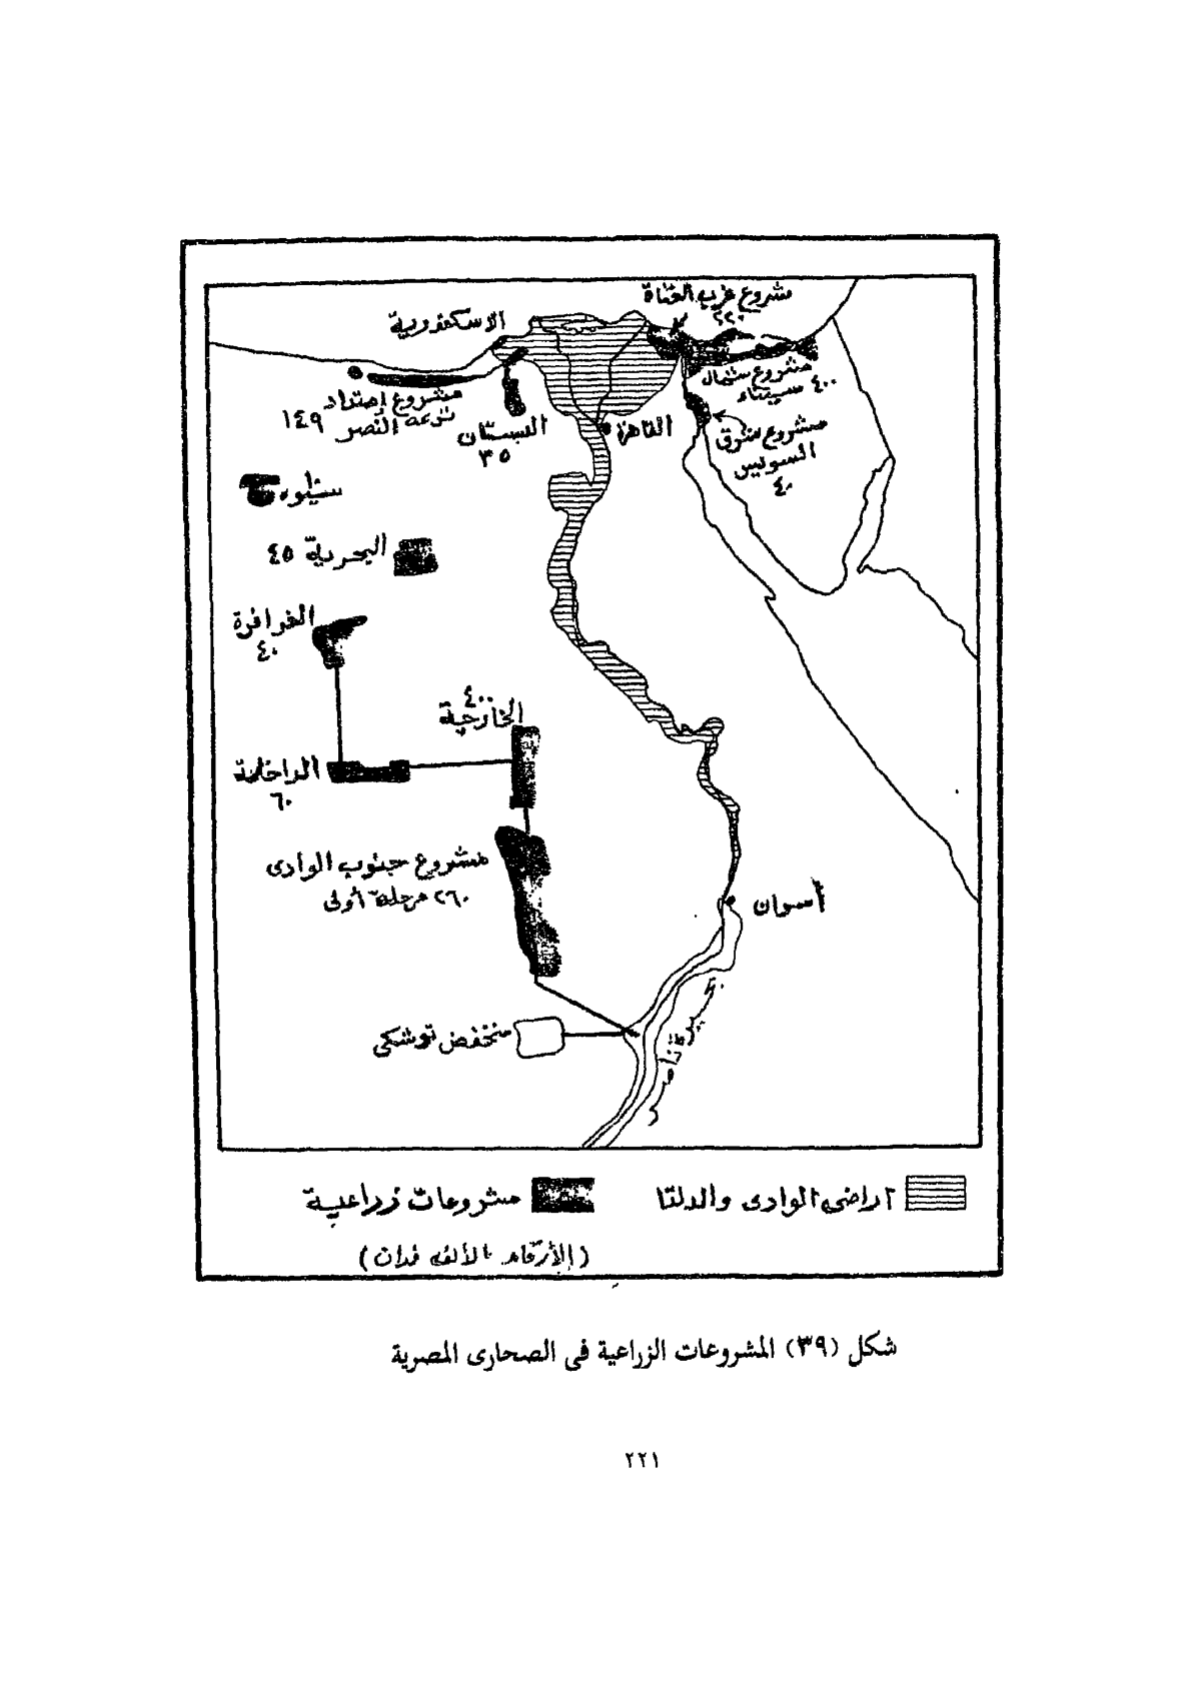 مشروع غرب القناة
٢٢٠
الاسكندرية
مشروع شمال
سيناء ٤٠٠
مشروع إمتداد
ترعة النصر ١٤٩
البستان
٣٥
القاهرة
مشروع شرق
السويس
٤٠
سيوه
البحرية ٤٥
الفرافرة
٤٠
٤٠٠
الخارجية
الداخلة
٦٠
مشروع جنوب الوادى
٢٦٠ مرحلة أولى
أسوان
منخفض توشكى
ناصر
اراضى الوادى والدلتا
مشروعات زراعية
(الأرقام بالألف فدان)
شكل (٣٩) المشروعات الزراعية فى الصحارى المصرية
٢٢١